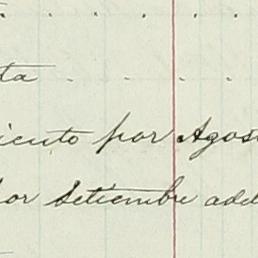 ta . . . .
iento por Agos
por Setiembre add